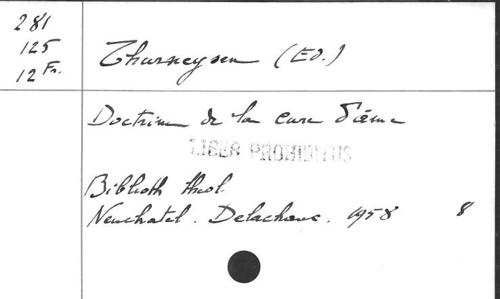 281
125
12 Fr.
Thurneysen (Ed.)
Doctrine de la cure d'âme
LIBER PROHIBITUS
Biblioth théol.
Neuchatel. Delachaux. 1958 8